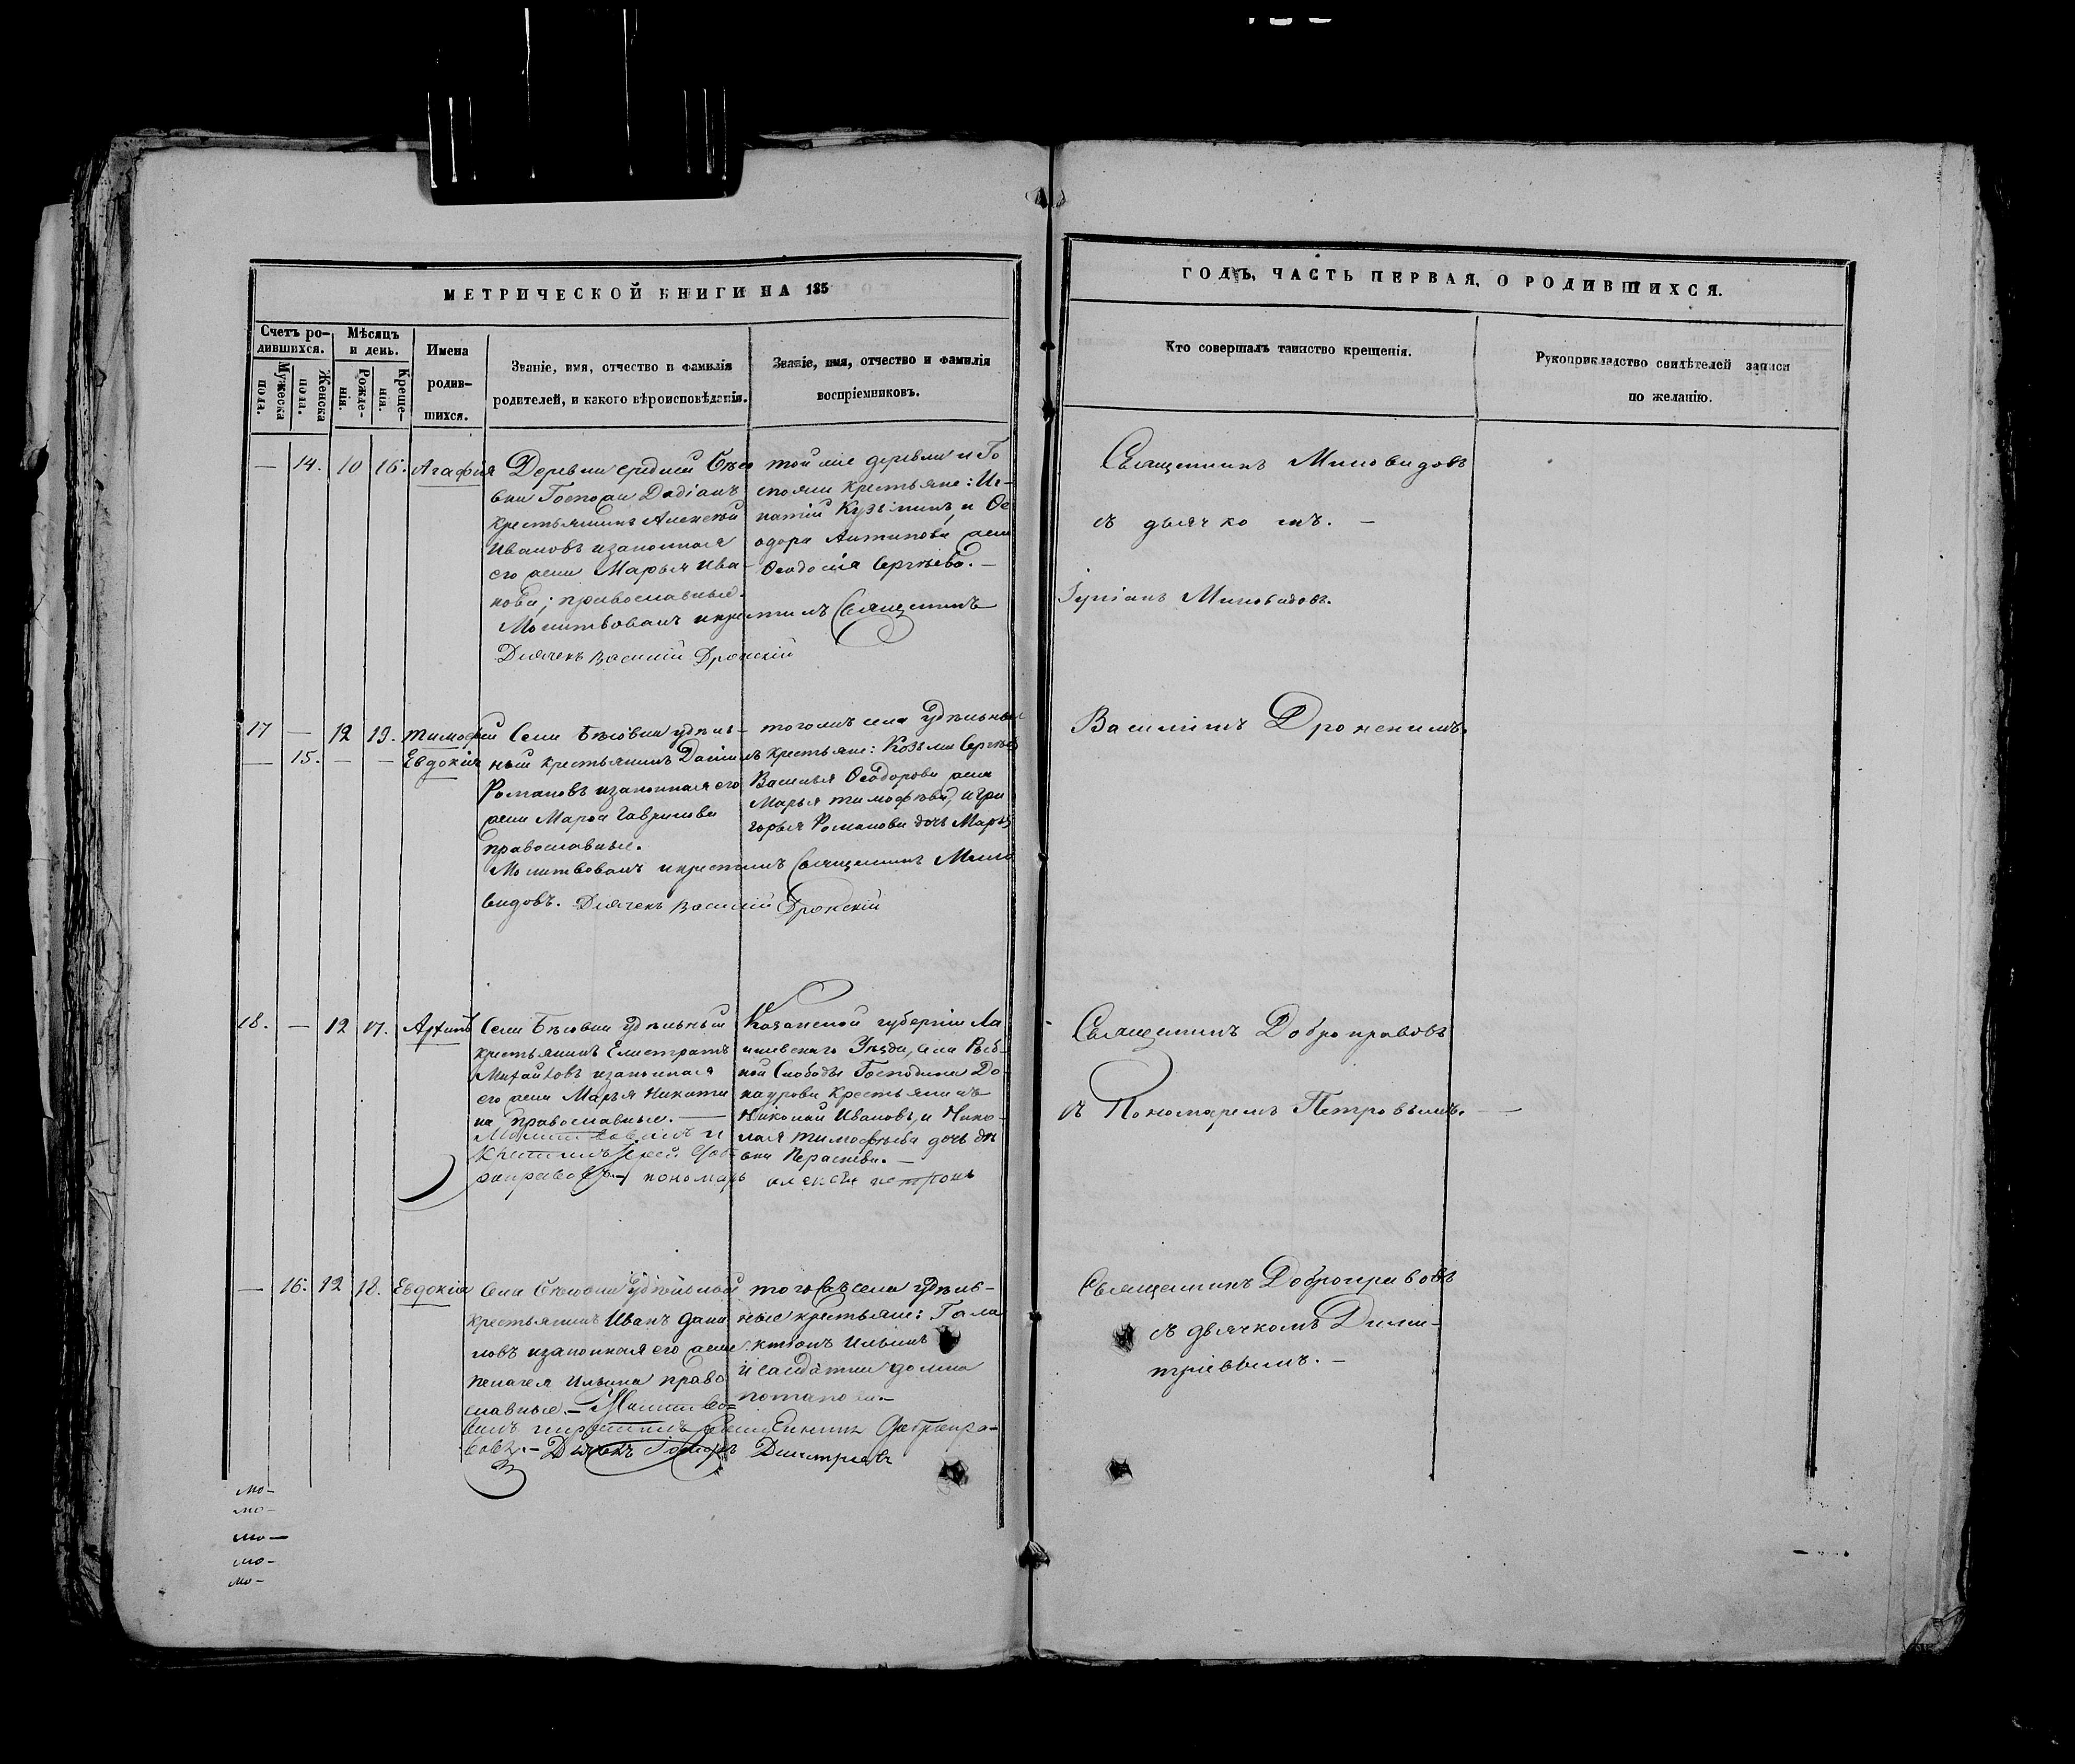 МЕТРИЧЕСКОЙ КНИГИ НА 185
Счетъ ро-
дившихся.
Мужеска
пола.
Женска
пола.
Мѣсяцъ
и день.
Рожде-
нія.
Креще-
нія.
Имена
родив-
шихся.
Званіе, имя, отчество и фамилія
родителей, и какого вѣроисповѣданія.
Званіе, имя, отчество и фамилія
воспріемниковъ.
— 14. 10 16. Агафія
Деревни средней
вки Госпожи Дадіанъ
крестьянинъ Алексѣй
Ивановъ изаконная
его жена Марья Ива-
нова; православные.
Молитвовалъ икрестилъ Священникъ
Дьячекъ Василій Дронскій
той же деревни и Го
спожи крестьяне: Иг-
натій Кузьминъ, и Ѳе
одора Антипова жена
Ѳеодосія Сергѣева. —
17 — 12 19. Тимофей
— 15. — — Евдокія
Села Бѣсовки удѣль-
ный крестьянинъ Даніилъ
Романовъ изаконная его
жена Марѳа Гаврилова
православные.
Молитвовалъ икрестилъ Священникъ Мино
видовъ. Дьячекъ Василій Дронскій
тогожъ села Удѣльные
крестьяне: Козьма Сергѣевъ
Василья Ѳеодорова жена
Марья Тимофѣева, и Гри
горья Романова дочь Марья
18. — 12 17. Архипъ
Села Бѣсовки Удѣльный
крестьянинъ Елистратъ
Михайловъ изаконная
его жена Марья Никити
на православные. —
Молитвовалъ и
крестилъ Іерей Доб
ронравовъ. — пономарь Алексѣй Петровъ
Казанской губерніи Ла
ишевскаго Уѣзда, села Рыб-
ной Слободы Господина До-
наурова крестьянинъ
Николай Ивановъ, и Нико-
лая Тимофѣева дочь дѣ
вка Парасковья. —
— 16. 12 18. Евдокія
Села Бѣсовки Удѣльный
крестьянинъ Иванъ Дани
ловъ изаконная его жена
Пелагея Ильина право
славные. — Молитво-
валъ икрестилъ Священникъ Добронра-
вовъ. — Дьячекъ Димитріевъ
тогожъ села удѣль-
ные крестьяне: Гала
ктіонъ Ильинъ
и солдатка Домна
Потапова. —
мо-
мо-
мо-
мо-
мо-
ГОДЪ, ЧАСТЬ ПЕРВАЯ, О РОДИВШИХСЯ.
Кто совершалъ таинство крещенія.
Рукоприкладство свидѣтелей записи
по желанію.
Священникъ Миновидовъ
съ дьячкомъ. —
Миновидовъ.
Василіемъ Дронскимъ.
Священникъ Добронравовъ
съ Пономаремъ Петровымъ. —
Священникъ Добронравовъ
съ дьячкомъ Дими-
тріевымъ. —